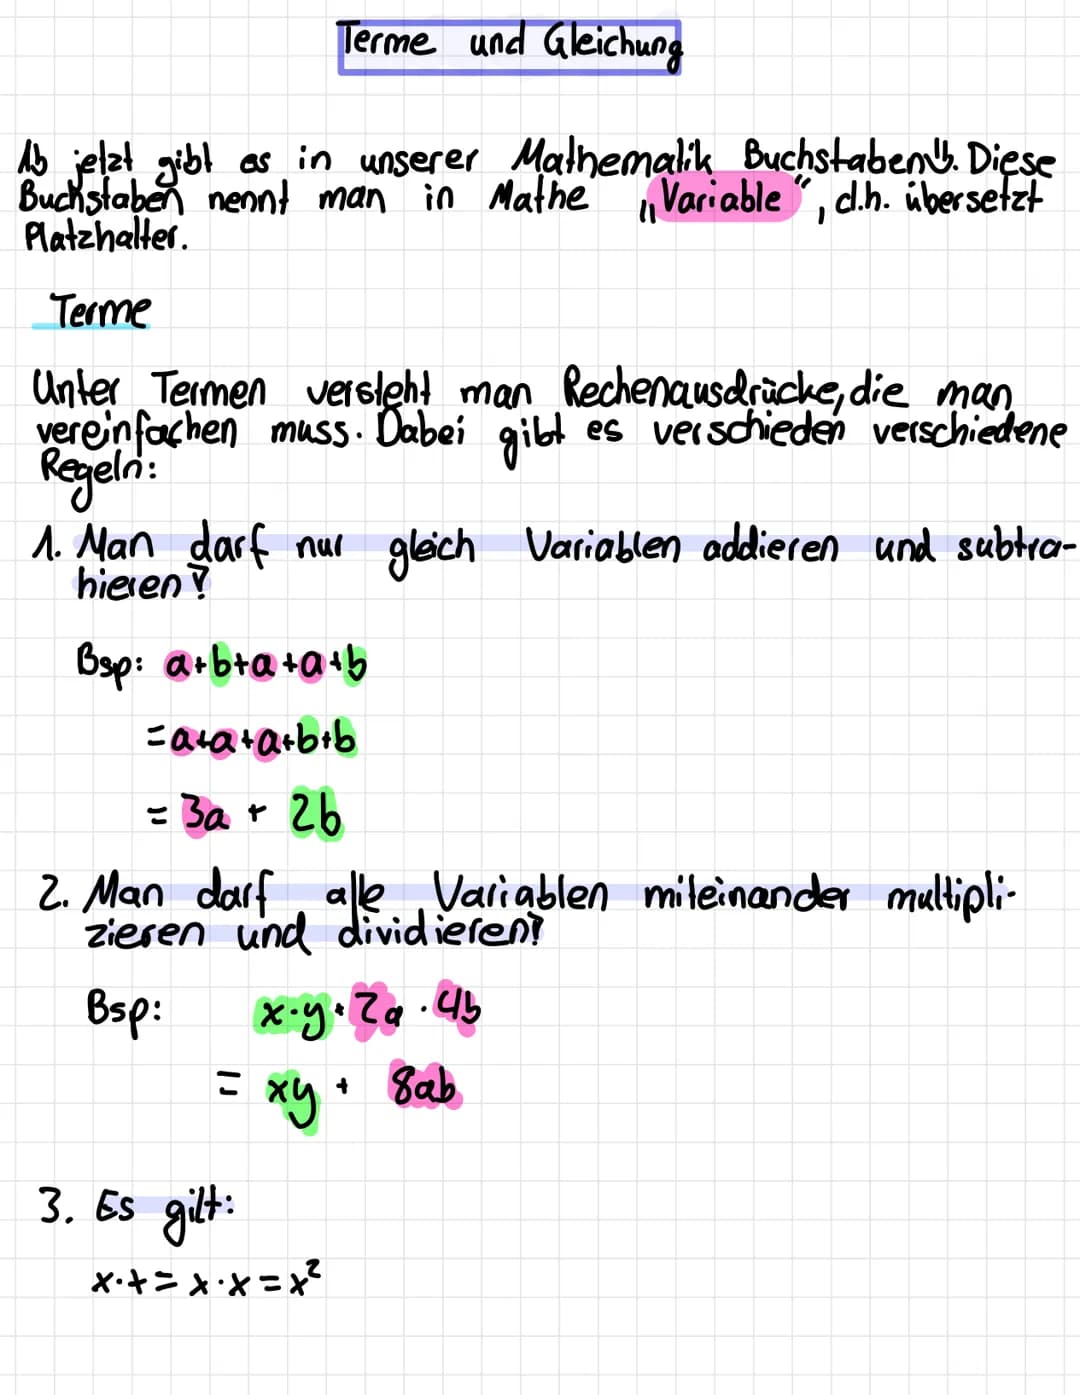 Terme und Gleichung
Ab jetzt gibt es in unserer Mathematik Buchstaben!. Diese
Buchstaben nennt man in Mathe „Variable“, d.h. übersetzt
Platzhalter.
Terme
Unter Termen versteht man Rechenausdrücke, die man
vereinfachen muss. Dabei gibt es verschieden verschiedene
Regeln:
1. Man darf nur gleich Variablen addieren und subtra-
hieren!
Bsp: a+b+a+a+b
=a+a+a+b+b
= 3a + 2b
2. Man darf alle Variablen miteinander multipli-
zieren und dividieren!
Bsp: x·y+2a·4b
= xy + 8ab
3. Es gilt:
x·x=x·x=x²